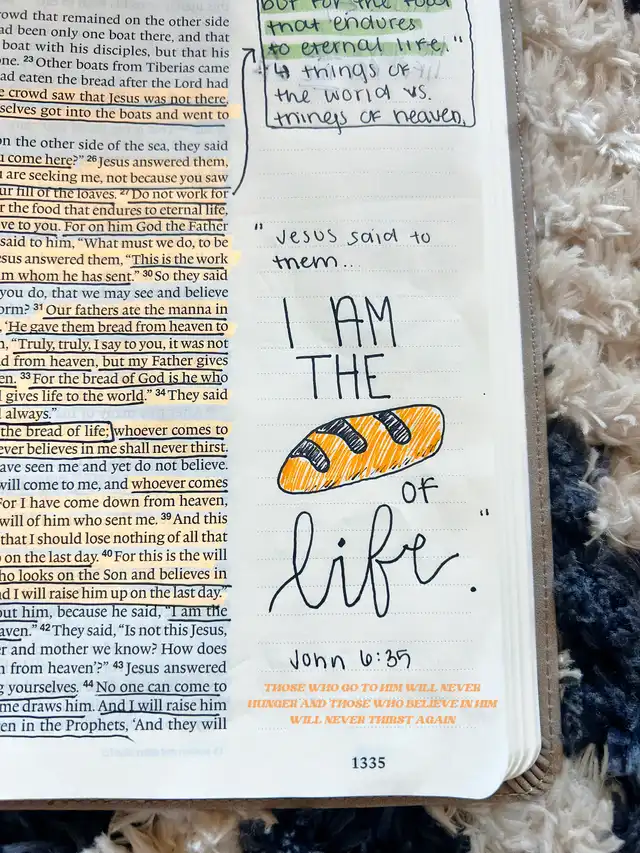 rowd that remained on the other side
ad been only one boat there, and that
boat with his disciples, but that his
ne. 23 Other boats from Tiberias came
ad eaten the bread after the Lord had
e crowd saw that Jesus was not there,
selves got into the boats and went to
on the other side of the sea, they said
u come here?” 26 Jesus answered them,
u are seeking me, not because you saw
ur fill of the loaves. 27 Do not work for
r the food that endures to eternal life,
ve to you. For on him God the Father
said to him, “What must we do, to be
esus answered them, “This is the work
m whom he has sent.” 30 So they said
you do, that we may see and believe
orm? 31 Our fathers ate the manna in
‘He gave them bread from heaven to
n, “Truly, truly, I say to you, it was not
d from heaven, but my Father gives
en. 33 For the bread of God is he who
l gives life to the world.” 34 They said
l always.”
the bread of life; whoever comes to
ever believes in me shall never thirst.
ave seen me and yet do not believe.
will come to me, and whoever comes
For I have come down from heaven,
will of him who sent me. 39 And this
that I should lose nothing of all that
o on the last day. 40 For this is the will
ho looks on the Son and believes in
d I will raise him up on the last day.”
out him, because he said, “I am the
aven.” 42 They said, “Is not this Jesus,
r and mother we know? How does
n from heaven’?” 43 Jesus answered
g yourselves. 44 No one can come to
me draws him. And I will raise him
en in the Prophets, ‘And they will
but for the food
that endures
to eternal life."
↳ things of
the world vs.
things of heaven.
" Jesus said to
them...
I AM
THE
OF
life."
John 6:35
THOSE WHO GO TO HIM WILL NEVER
HUNGER AND THOSE WHO BELIEVE IN HIM
WILL NEVER THIRST AGAIN
1335